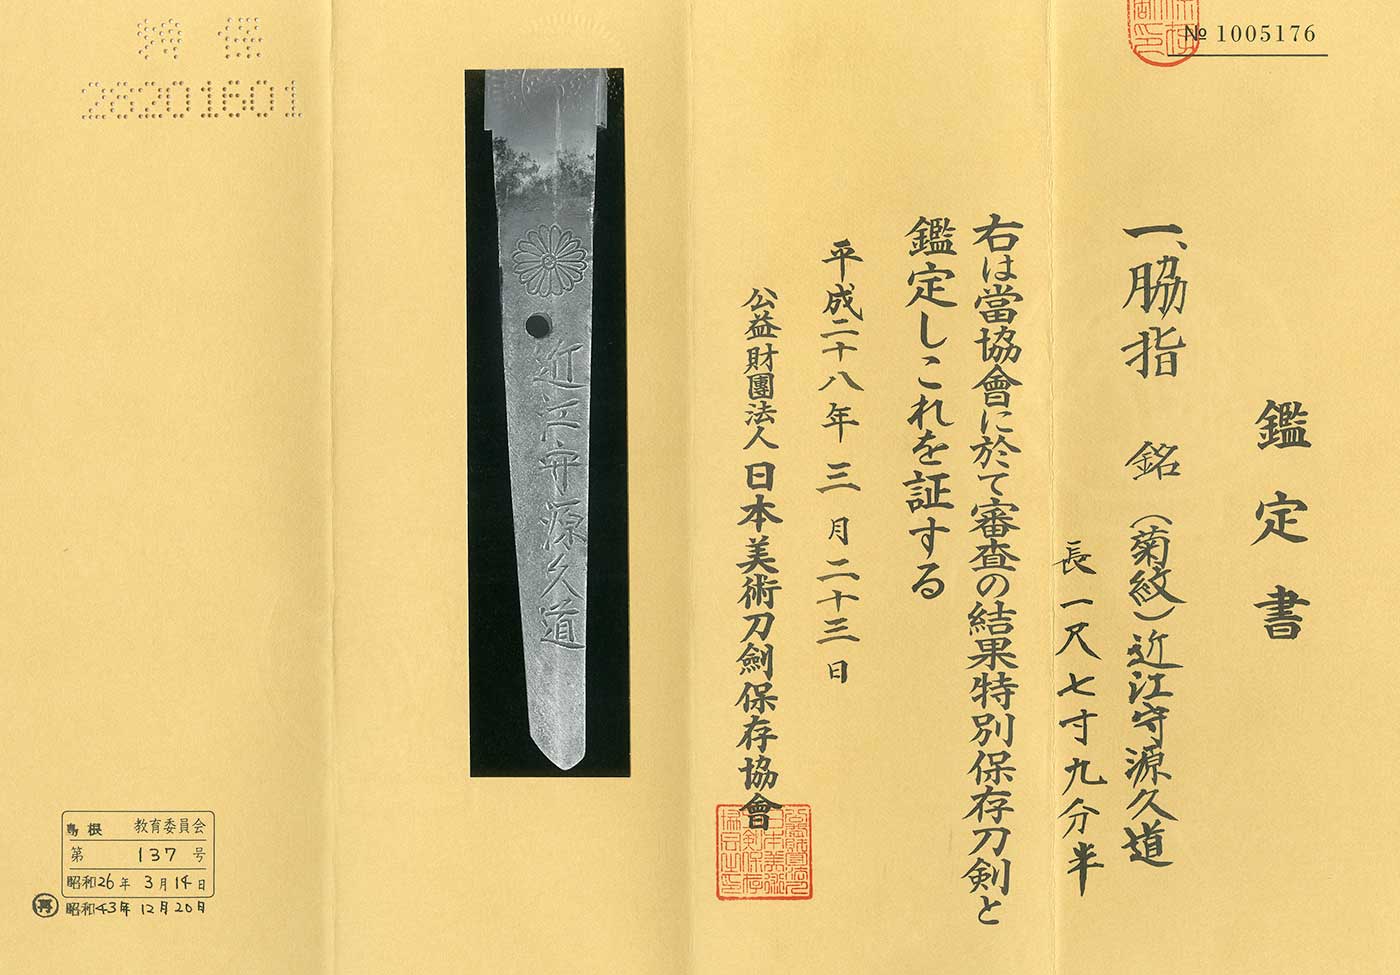 № 1005176
鑑定書
一、脇指 銘(菊紋)近江守源久道
長一尺七寸九分半
右は當協會に於て審査の結果特別保存刀剣と
鑑定しこれを証する
平成二十八年三月二十三日
公益財團法人日本美術刀劍保存協會
近江守源久道
特保
28201601
島根 教育委員会
第 137 号
昭和26年 3月14日
再 昭和43年 12月20日